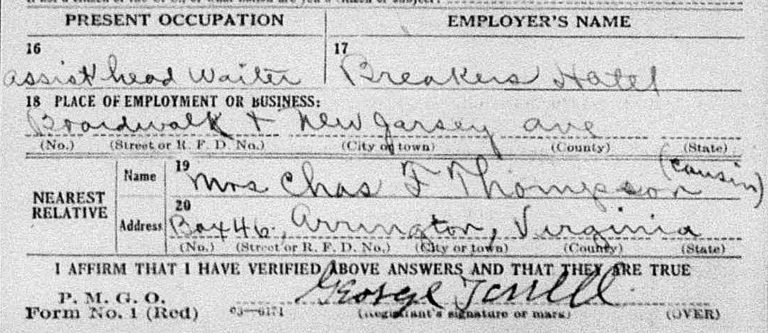 PRESENT OCCUPATION EMPLOYER'S NAME
16 17
assist head Waiter Breakers Hotel
18 PLACE OF EMPLOYMENT OR BUSINESS:
Boardwalk + New Jarsey ave
(No.) (Street or R. F. D. No.) (City or town) (County) (State)
19 (cousin)
Name Mrs Chas F Thompson
NEAREST RELATIVE
20
Address Box 46, Arrington, Virginia
(No.) (Street or R. F. D. No.) (City or town) (County) (State)
I AFFIRM THAT I HAVE VERIFIED ABOVE ANSWERS AND THAT THEY ARE TRUE
P. M. G. O.
Form No. 1 (Red) 03—6171 George (Registrant's signature or mark) (OVER)